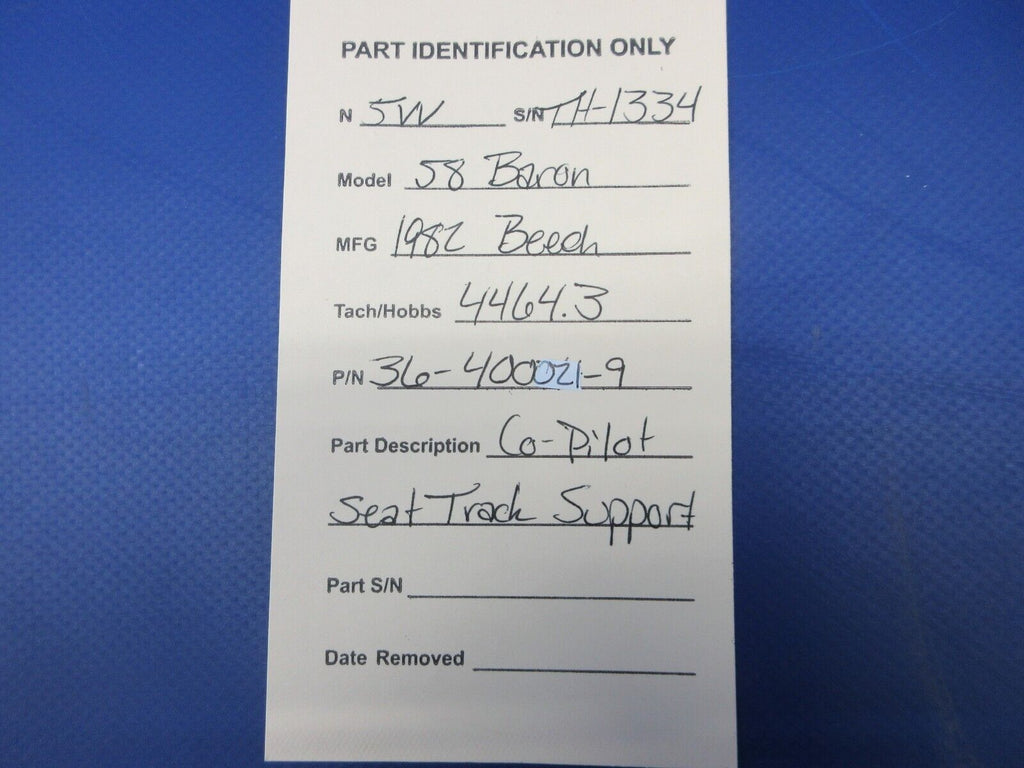 PART IDENTIFICATION ONLY
N 5W S/N TH-1334
Model 58 Baron
MFG 1982 Beech
Tach/Hobbs 4464.3
P/N 36-400021-9
Part Description Co-Pilot
Seat Track Support
Part S/N
Date Removed